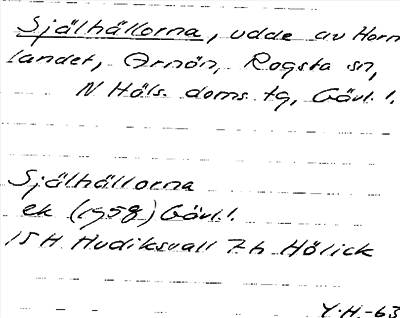 Själhällorna, udde av Horn
landet, Arnön, Rogsta sn,
N Häls. doms. tg, Gävl. l.
Själhällorna
ek (1958) Gävl. l.
15H Hudiksvall 7h Hölick
Y.H.-63